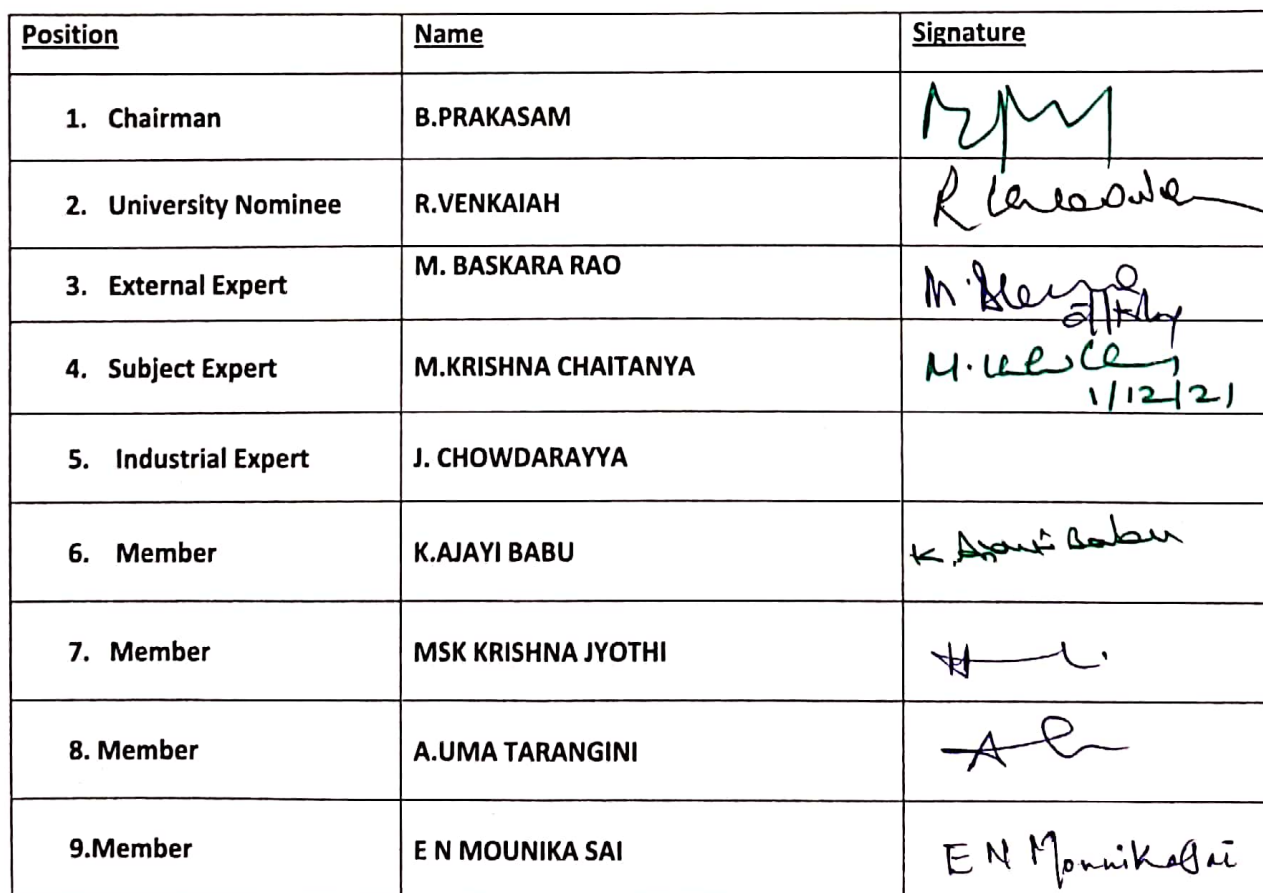 Position Name Signature
1. Chairman B.PRAKASAM
2. University Nominee R.VENKAIAH R
3. External Expert M. BASKARA RAO M.
4. Subject Expert M.KRISHNA CHAITANYA M.
1/12/21
5. Industrial Expert J. CHOWDARAYYA
6. Member K.AJAYI BABU K. Ajayi Babu
7. Member MSK KRISHNA JYOTHI
8. Member A.UMA TARANGINI A
9.Member E N MOUNIKA SAI E N Mounika Sai